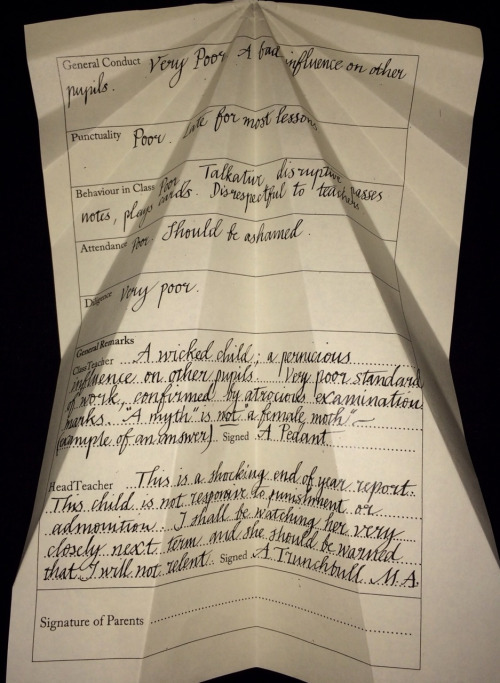 General Conduct Very Poor A bad influence on other
pupils.
Punctuality Poor. Late for most lessons
Behaviour in Class Poor Talkative, disruptive
notes, plays cards. Disrespectful to teachers passes
Attendance Poor Should be ashamed.
Diligence Very poor.
General Remarks
Class Teacher A wicked child; a pernicious
influence on other pupils. Very poor standard
of work, confirmed by atrocious examination
marks. "A myth" is not "a female moth"
(example of an answer) Signed A Pedant
Head Teacher This is a shocking end of year report.
This child is not responsive to punishment or
admonition. I shall be watching her very
closely next term and she should be warned
that I will not relent. Signed A Trunchbull M.A.
Signature of Parents